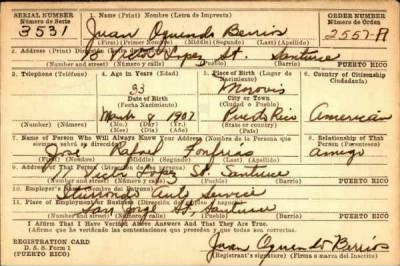 SERIAL NUMBER
Número de Serie
3531
1. Name (Print) Nombre (Letra de Imprenta)
Juan Oquendo Berrios
(First) (Primer Nombre) (Middle) (Segundo) (Last) (Apellido)
ORDER NUMBER
Número de Orden
2557-A
2. Address (Print)
10 Lopez St. Santurce
(Number and street) (Número y calle) (Town) (Pueblo) (Barrio)
PUERTO RICO
3. Telephone (Teléfono)
(Exchange) (Number) (Número)
4. Age in Years (Edad)
33
Date of Birth
(Fecha Nacimiento)
March 8 1907
(Mo.) (Day) (Día) (Yr.) (Año)
5. Place of Birth (Lugar de Nacimiento)
Morovis
City or Town
(Ciudad o Pueblo)
Puerto Rico
(State or country)
6. Country of Citizenship
Ciudadanía
American
7. Name of Person Who Will Always Know Your Address
José Rafael Fonfrias
(First) (Primer Nombre) (Middle) (Segundo) (Last) (Apellido)
8. Relationship of That Person (Parentesco)
Amigo
9. Address of That Person
Victor Lopez St. Santurce
(Number and street) (Número y calle) (Town) (Pueblo) (Barrio)
PUERTO RICO
10. Employer's Name
Auto Service
11. Place of Employment or Business
San Jorge St, Santurce
(Number and street) (Número y calle) (Town) (Pueblo) (Barrio)
PUERTO RICO
I Affirm That I Have Verified Above Answers And That They Are True.
Afirmo que he verificado las contestaciones que preceden y que son ciertas.
REGISTRATION CARD
D. S. S. Form 1
(PUERTO RICO)
Juan Oquendo Berrios
(Registrant's signature) (Firma o marca del Inscrito)